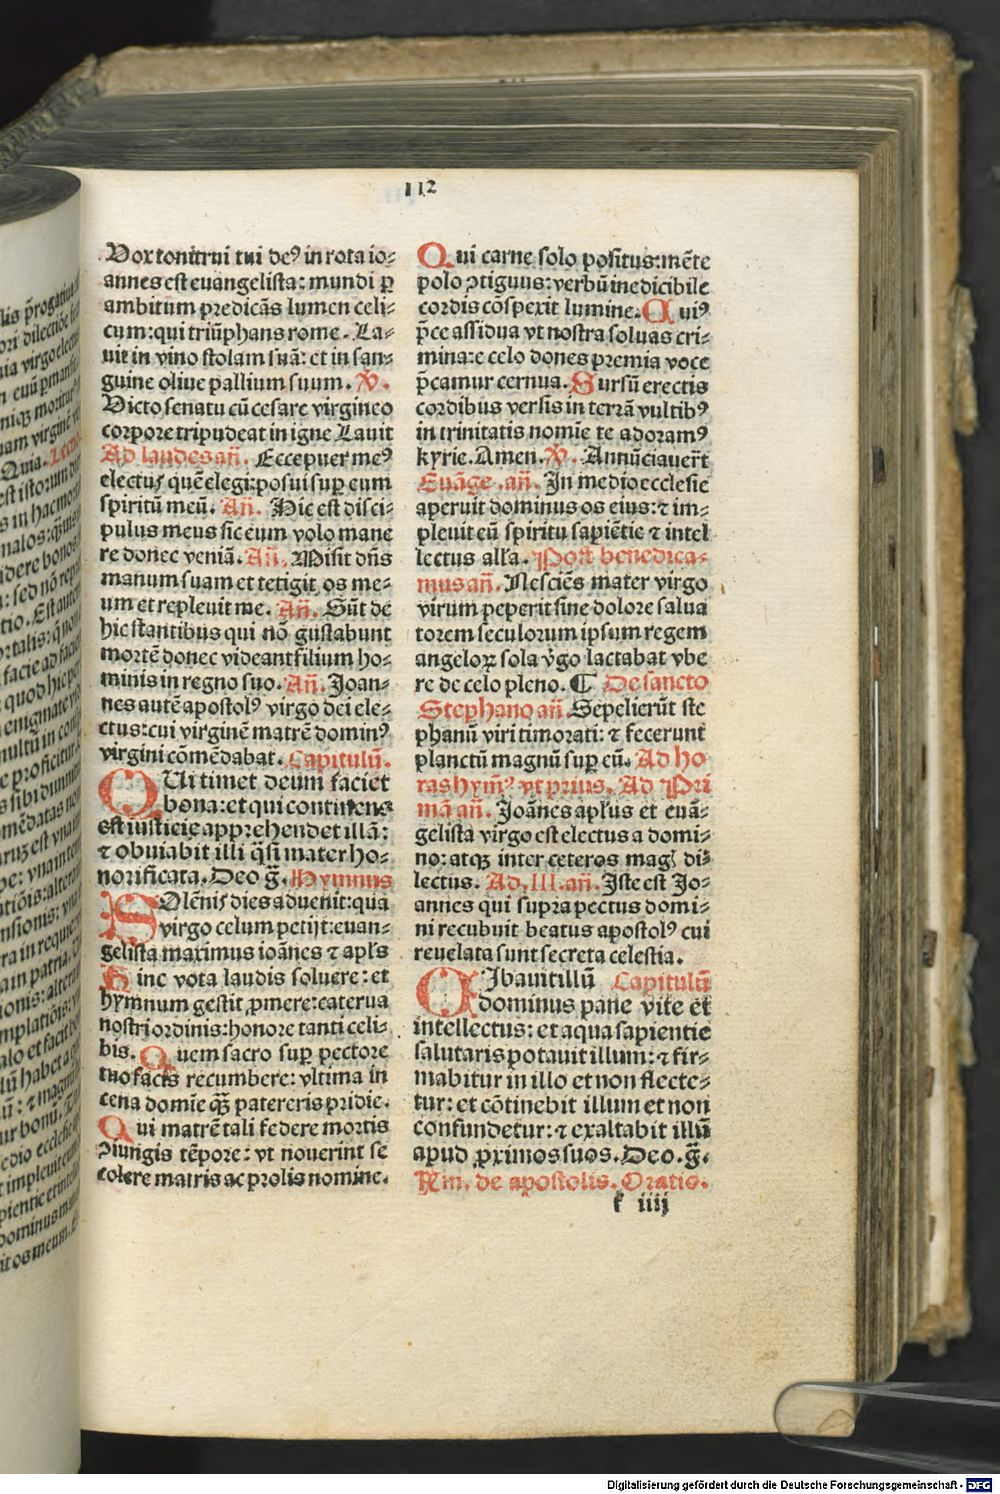 112
Vox tonitrui tui deꝰ in rota io⸗
annes est euangelista: mundi ꝑ
ambitum predicās lumen celi⸗
cum: qui triūphans rome. La⸗
uit in vino stolam suā: et in san⸗
guine oliue pallium suum. V̄.
Victo senatu cū cesare virgineo
corpore tripudeat in igne Lauit
Ad laudes an̄. Ecce puer meꝰ
electus quē elegi: posui suꝑ eum
spiritū meū. An̄. Hic est disci⸗
pulus meus sic eum volo mane
re donec veniā. An̄. Misit dn̄s
manum suam et tetigit os me⸗
um et repleuit me. An̄. Sūt de
hic stantibus qui nō gustabunt
mortē donec videant filium ho⸗
minis in regno suo. An̄. Joan⸗
nes autē apostolꝰ virgo dei ele⸗
ctus: cui virginē matrē dominꝰ
virgini cōmēdabat. Capitulū.
QUi timet deum faciet
bona: et qui continens
est iusticie apprehendet illā:
⁊ obuiabit illi q̄si mater ho⸗
norificata. Deo g̃. Hymnus
SOlēnis dies aduenit: qua
virgo celum petijt: euan⸗
gelista maximus ioānes ⁊ apl̄s
Hinc vota laudis soluere: et
hymnum gestit ꝓmere: caterua
nostri ordinis: honore tanti celi⸗
bis. Quem sacro suꝑ pectore
tuo facis recumbere: vltima in
cena domīe q̄ꝫ patereris pridie.
Qui matrē tali federe mortis
ꝯiungis tēpore: vt nouerint se
colere matris ac prolis nomine.
Qui carne solo positus: mēte
polo ꝯtiguus: verbū inedicibile
cordis cōspexit lumine. Quiꝰ
p̄ce assidua vt nostra soluas cri⸗
mina: e celo dones premia voce
p̄camur cernua. Sursū erectis
cordibus versis in terrā vultibꝰ
in trinitatis nomīe te adoramꝰ
kyrie. Amen. V̄. Annūciauer̄t
Euāge. an̄. In medio ecclesie
aperuit dominus os eius: ⁊ im⸗
pleuit eū spiritu sapiētie ⁊ intel
lectus all'a. Post benedica⸗
mus an̄. Nesciēs mater virgo
virum peperit sine dolore salua
torem seculorum ipsum regem
angeloꝝ sola v̓go lactabat vbe
re de celo pleno. ¶ De sancto
Stephano an̄. Sepelierūt ste
phanū viri timorati: ⁊ fecerunt
planctū magnū suꝑ eū. Ad ho
ras hym̄ꝰ vt prius. Ad Pri
mā an̄. Joānes apl'us et euā⸗
gelista virgo est electus a domi⸗
no: atqꝫ inter ceteros magꝭ di⸗
lectus. Ad. III. an̄. Iste est Jo⸗
annes qui supra pectus domi⸗
ni recubuit beatus apostolꝰ cui
reuelata sunt secreta celestia.
CIbauit illū Capitulū
dominus pane vite et
intellectus: et aqua sapientie
salutaris potauit illum: ⁊ fir⸗
mabitur in illo et non flecte⸗
tur: et cōtinebit illum et non
confundetur: ⁊ exaltabit illū
apud ꝓximos suos. Deo. g̃.
Rm̄. de apostolis. Oratio.
k iiij
Digitalisierung gefördert durch die Deutsche Forschungsgemeinschaft - DFG